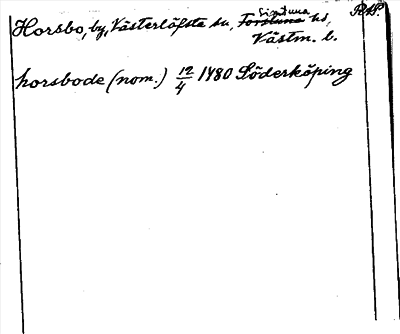 RAP.
Horsbo, by, Västerlöfsta sn, Simtuna Torstuna hd,
Västm. l.
horsbode (nom.) 12/4 1480 Söderköping